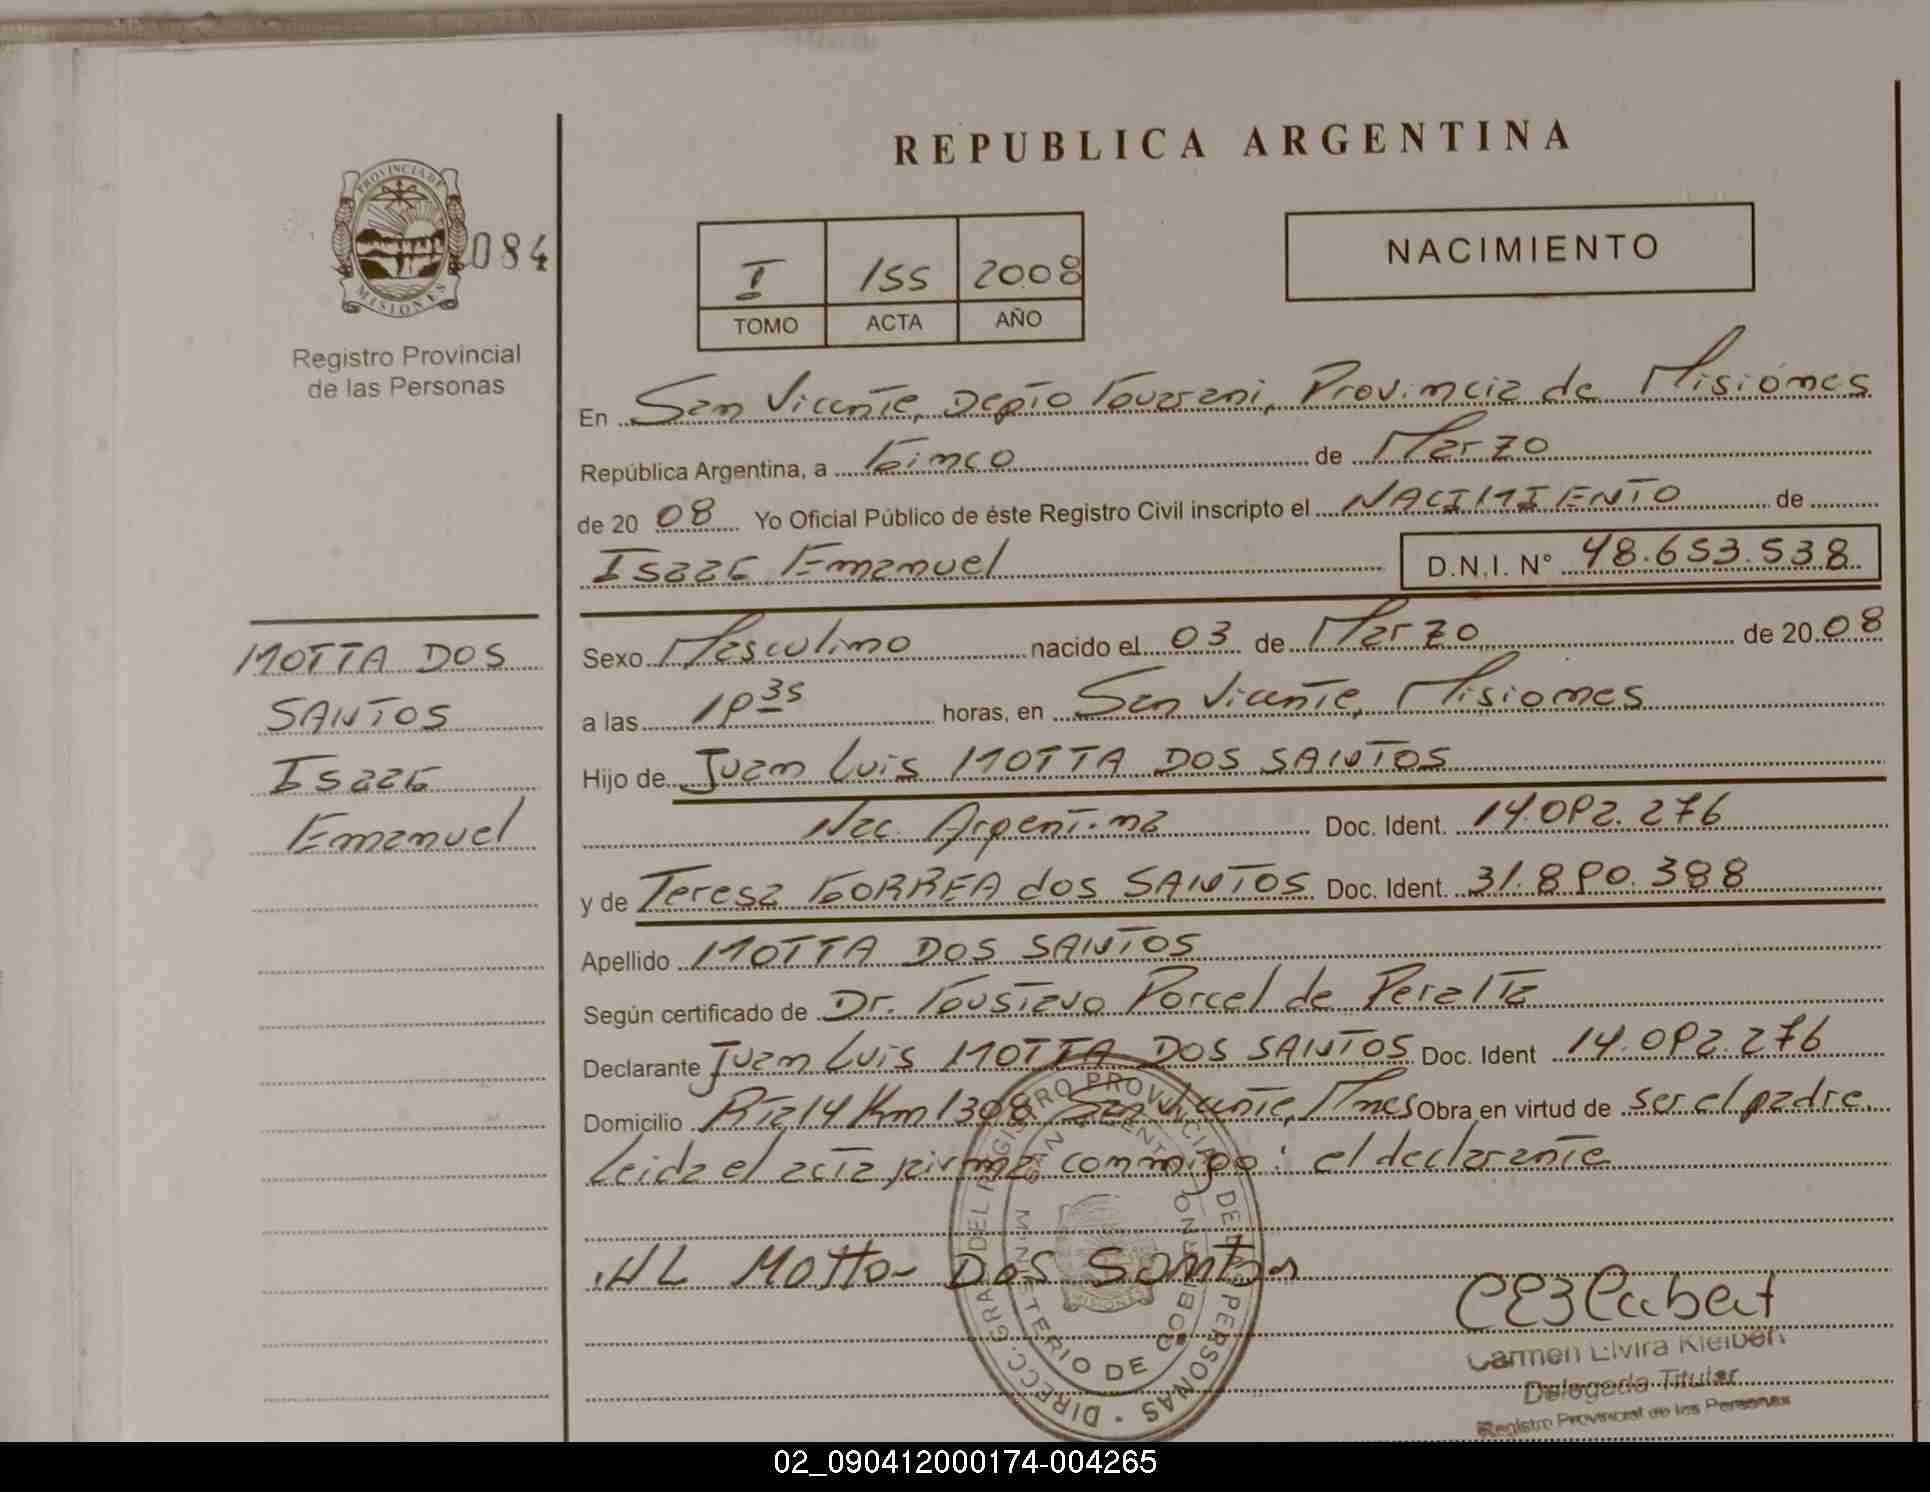 REPUBLICA ARGENTINA
PROVINCIA DE
MISIONES
084
Registro Provincial
de las Personas
I 155 2008
TOMO ACTA AÑO
NACIMIENTO
En San Vicente, Depto Guarani, Provincia de Misiones
República Argentina, a Cinco de Marzo
de 20 08 Yo Oficial Público de éste Registro Civil inscripto el NACIMIENTO de
Isaac Emanuel D.N.I. Nº 48.653.538
MOTTA DOS
SANTOS
Isaac
Emanuel
Sexo Masculino nacido el 03 de Marzo de 20 08
a las 19 35 horas, en San Vicente, Misiones
Hijo de Juan Luis MOTTA DOS SANTOS
Nac. Argentina Doc. Ident. 14.092.276
y de Teresa CORREA dos SANTOS Doc. Ident. 31.890.388
Apellido MOTTA DOS SANTOS
Según certificado de Dr. Gustavo Porcel de Peralta
Declarante Juan Luis MOTTA DOS SANTOS Doc. Ident 14.092.276
Domicilio Rta 14 Km 1308 San Vicente, Mnes Obra en virtud de ser el padre.
Leida el acta firma conmigo: el declarante
JL Motta Dos Santos
DIRECC. GRAL. DEL REGISTRO PROVINCIAL DE LAS PERSONAS
SAN VICENTE
MINISTERIO DE GOBIERNO
MISIONES
Carmen Elvira Kleiben
Delegada Titular
Registro Provincial de las Personas
02_090412000174-004265